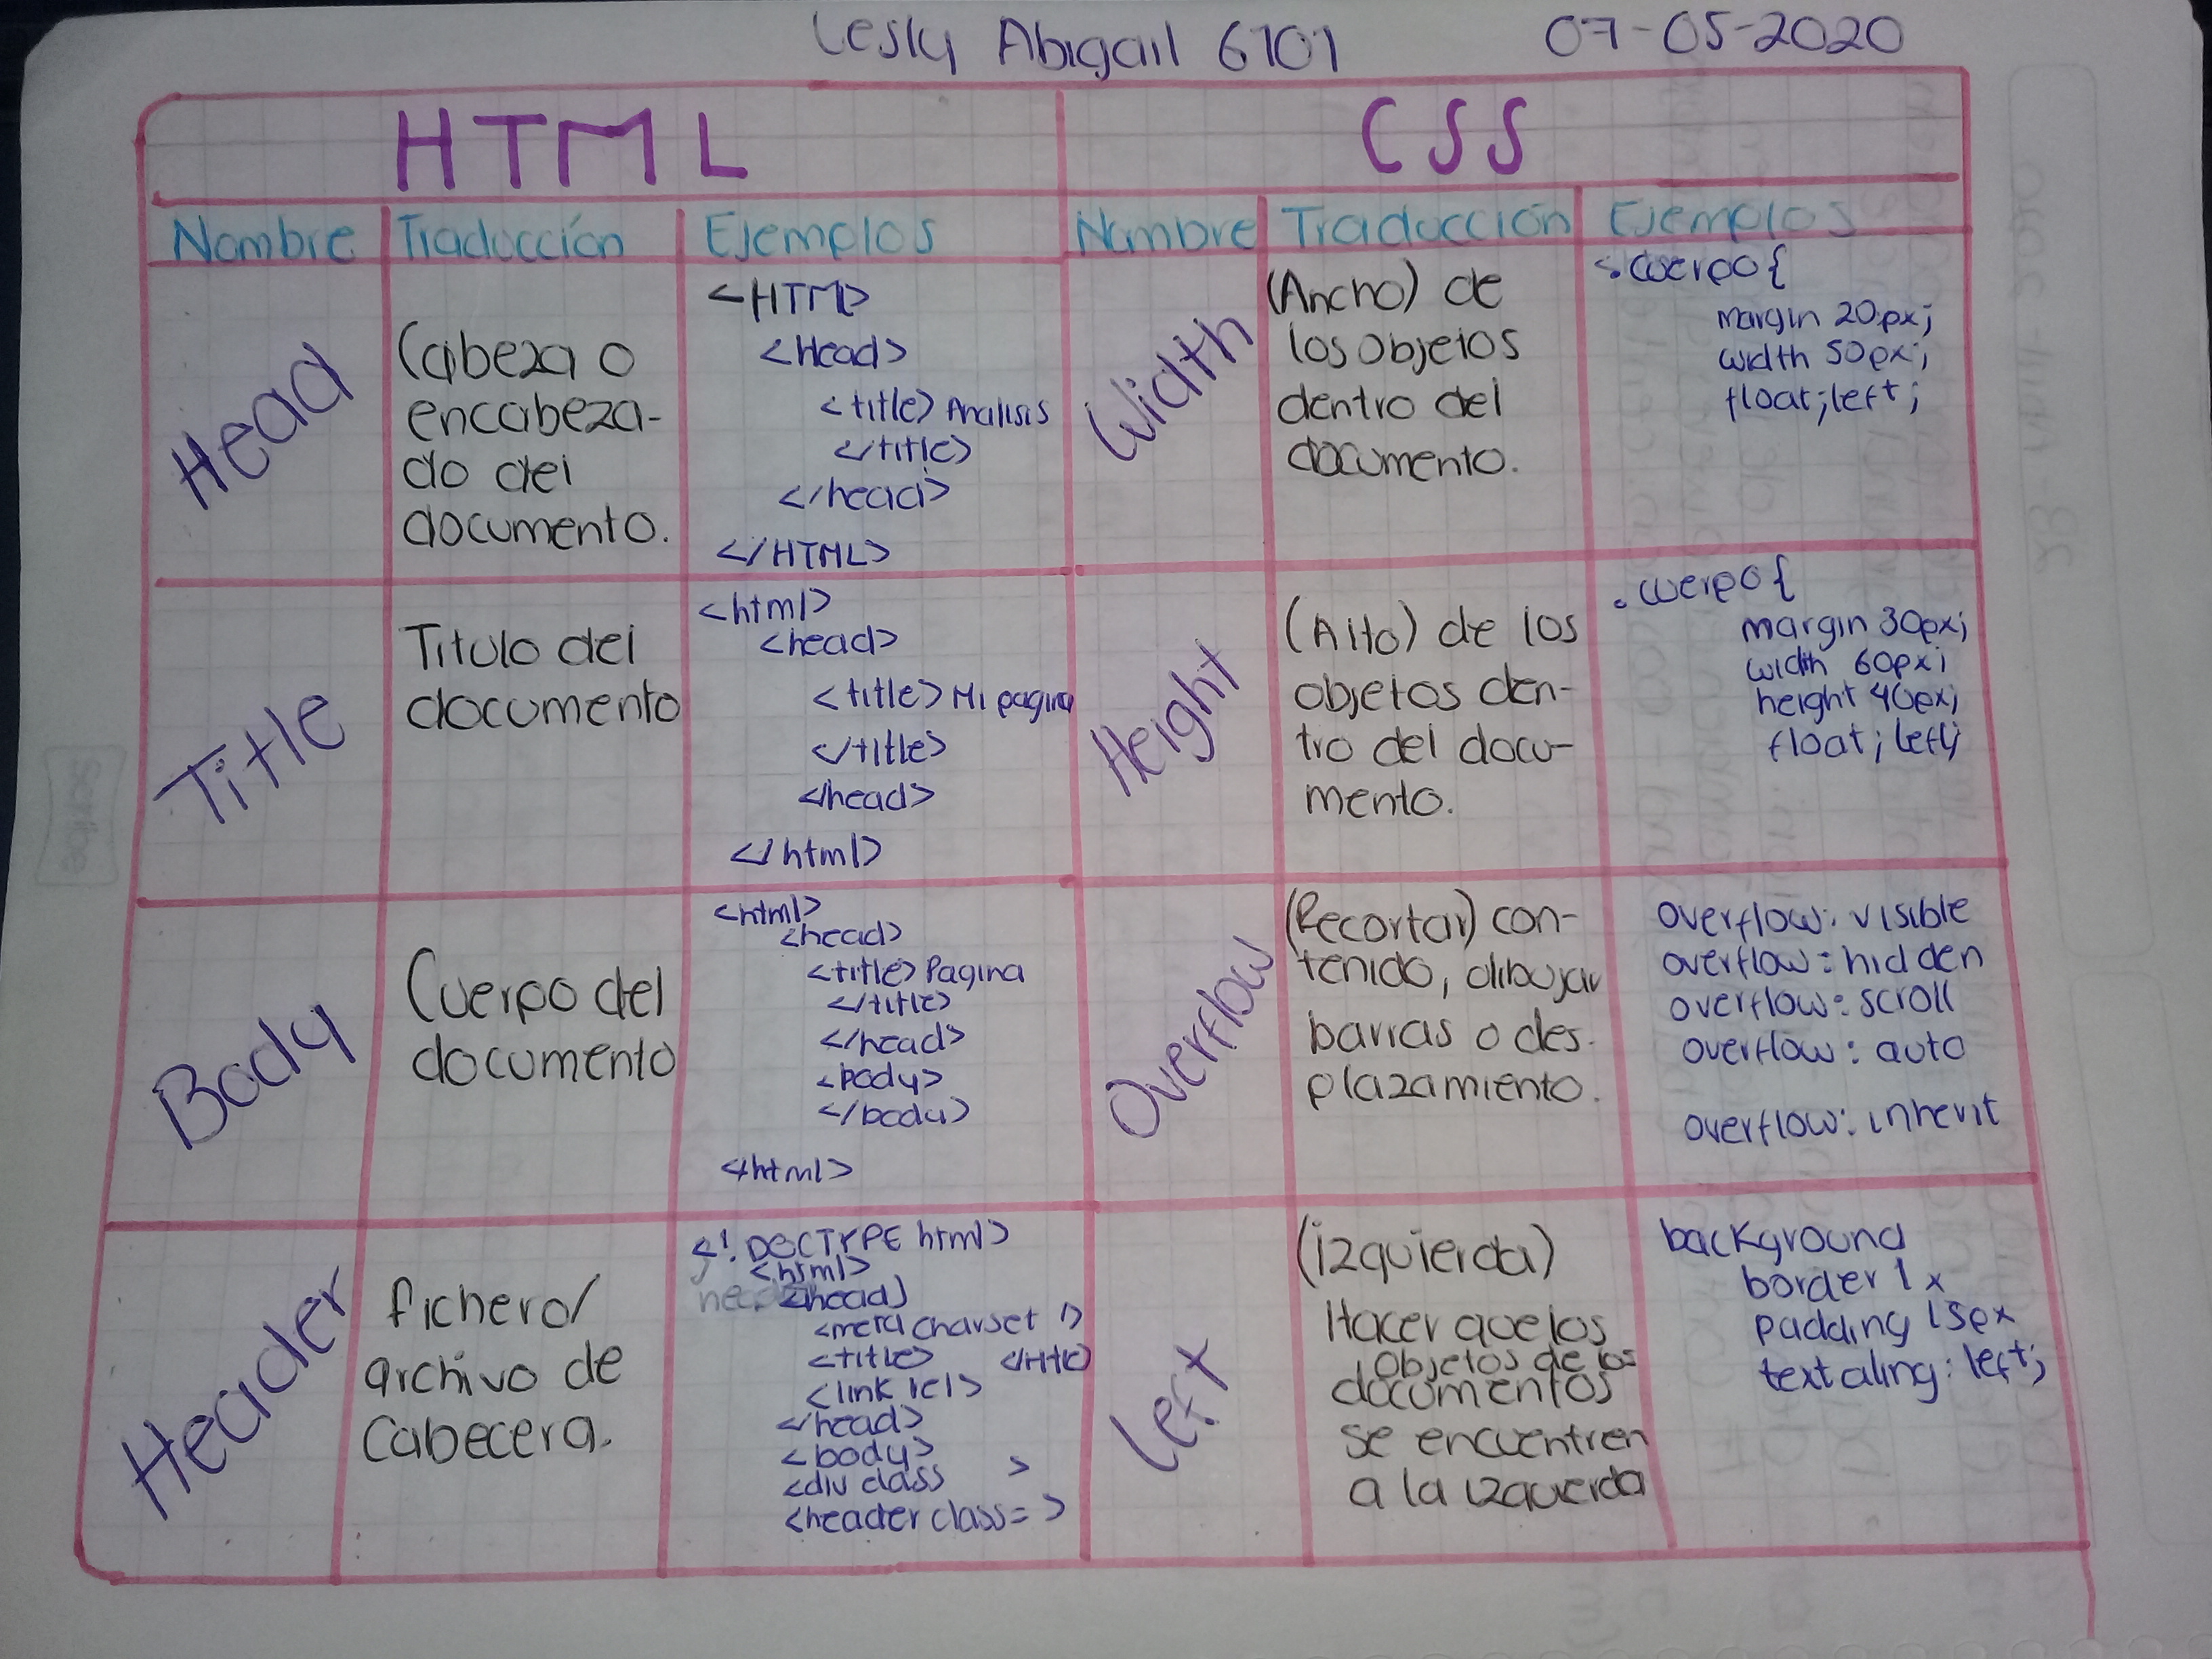 Lesly Abigail 6101 07-05-2020
HTML
CSS
Nombre Traducción Ejemplos
Nombre Traducción Ejemplos
Head
Cabeza o
encabeza-
do del
documento.
<HTM>
<Head>
<title> Analisis
</title>
</head>
</HTML>
Width
(Ancho) de
los objetos
dentro del
documento.
.cuerpo{
margin 20px;
width 50px;
float;left;
Title
Titulo del
documento
<html>
<head>
<title> Mi pagina
</title>
</head>
</html>
Height
(Alto) de los
objetos den-
tro del docu-
mento.
.cuerpo{
margin 30px;
width 60px;
height 40px;
float; left;
Body
Cuerpo del
documento
<html>
<head>
<title> Pagina
</title>
</head>
<body>
</body>
</html>
Overflow
(Recortar) con-
tenido, dibujar
barras o des-
plazamiento.
overflow: visible
overflow: hidden
overflow: scroll
overflow: auto
overflow: inherit
Header
fichero/
archivo de
Cabecera.
<!DOCTYPE html>
<html>
<head>
<meta charset />
<title> </title>
<link rel>
</head>
<body>
<div class >
<header class= >
Left
(izquierda)
Hacer que los
objetos de los
documentos
se encuentren
a la izquierda
background
border 1x
padding 15px
text aling: left;
Scribe